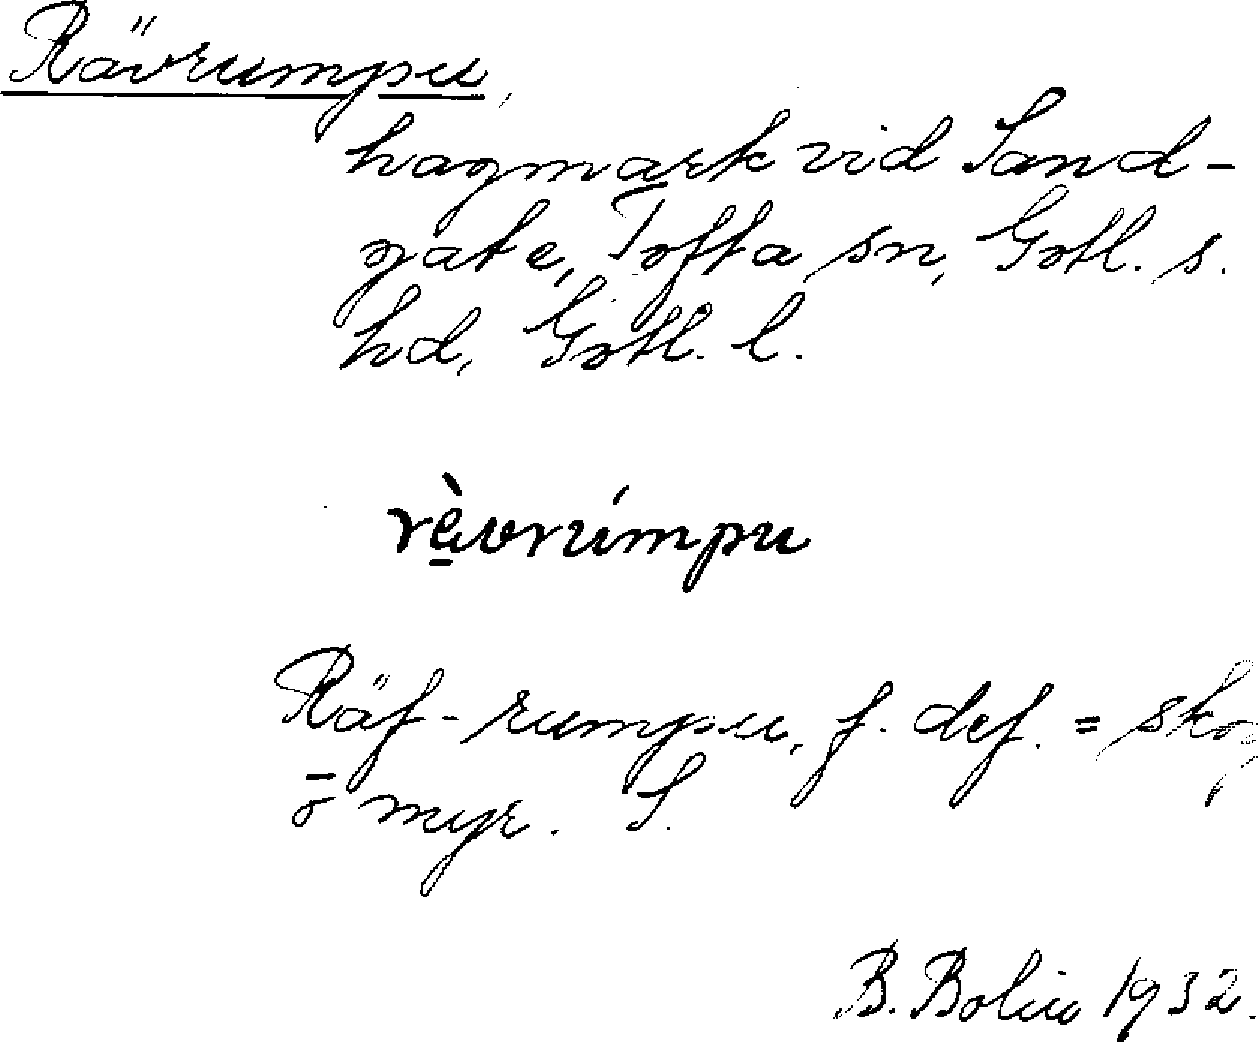 Rävrumpu,
hagmark vid Sand-
gate, Tofta sn, Gotl. s.
hd, Gotl. l.
rè̱vrúmpu
Räf-rumpu, f. def. = skog
o myr. S.
B. Bolin 1932.